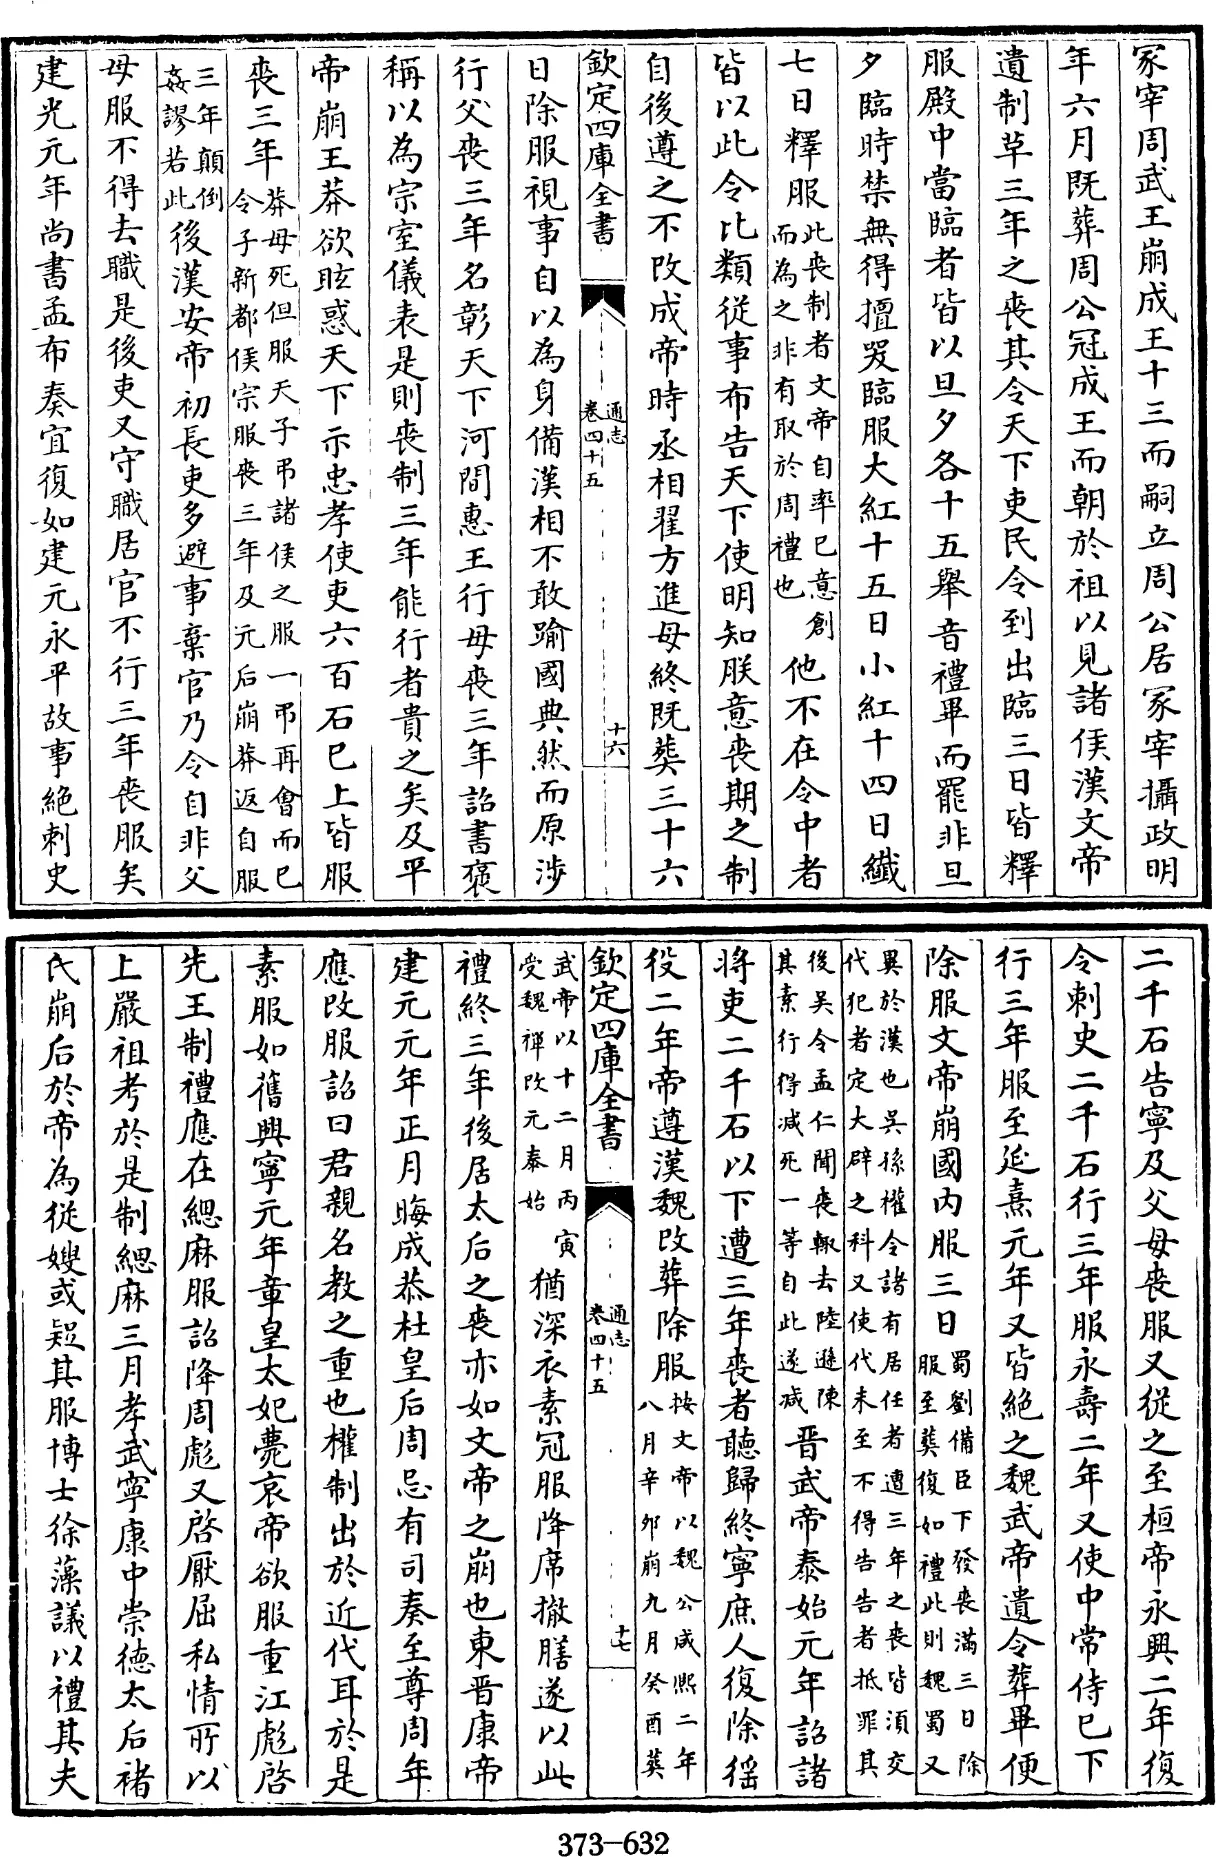 冢宰周武王崩成王十三而嗣立周公居冢宰攝政明
年六月既葬周公冠成王而朝於祖以見諸侯漢文帝
遺制革三年之喪其令天下吏民令到出臨三日皆釋
服殿中當臨者皆以旦夕各十五舉音禮畢而罷非旦
夕臨時禁無得擅哭臨服大紅十五日小紅十四日纖
七日釋服此喪制者文帝自率已意創而為之非有取於周禮也他不在令中者
皆以此令比類從事布告天下使明知朕意喪期之制
自後遵之不改成帝時丞相翟方進母終既葬三十六
欽定四庫全書
通志
卷四十五
十六
日除服視事自以為身備漢相不敢踰國典然而原涉
行父喪三年名彰天下河間惠王行母喪三年詔書褒
稱以為宗室儀表是則喪制三年能行者貴之矣及平
帝崩王莽欲眩惑天下示忠孝使吏六百石已上皆服
喪三年莽母死但服天子弔諸侯之服一弔再會而已令子新都侯宗服喪三年及元后崩莽返自服
三年顛倒姦謬若此後漢安帝初長吏多避事棄官乃令自非父
母服不得去職是後吏又守職居官不行三年喪服矣
建光元年尚書孟布奏宜復如建元永平故事絶刺史
二千石告寧及父母喪服又從之至桓帝永興二年復
令刺史二千石行三年服永壽二年又使中常侍已下
行三年服至延熹元年又皆絶之魏武帝遺令葬畢便
除服文帝崩國內服三日蜀劉備臣下發喪滿三日除服至葬復如禮此則魏蜀又
異於漢也吳孫權令諸有居任者遭三年之喪皆須交代犯者定大辟之科又使代未至不得告告者抵罪其
後吳令孟仁聞喪輒去陸遜陳其素行得減死一等自此遂減晉武帝泰始元年詔諸
將吏二千石以下遭三年喪者聽歸終寧庶人復除徭
役二年帝遵漢魏改葬除服按文帝以魏公咸熙二年八月辛夘崩九月癸酉葬
欽定四庫全書
通志
卷四十五
十七
武帝以十二月丙寅受魏禪改元泰始猶深衣素冠服降席撤膳遂以此
禮終三年後居太后之喪亦如文帝之崩也東晉康帝
建元元年正月晦成恭杜皇后周忌有司奏至尊周年
應改服詔曰君親名教之重也權制出於近代耳於是
素服如舊興寧元年章皇太妃薨哀帝欲服重江彪啓
先王制禮應在緦麻服詔降周彪又啓厭屈私情所以
上嚴祖考於是制緦麻三月孝武寧康中崇德太后褚
氏崩后於帝為從嫂或疑其服博士徐藻議以禮其夫
373-632